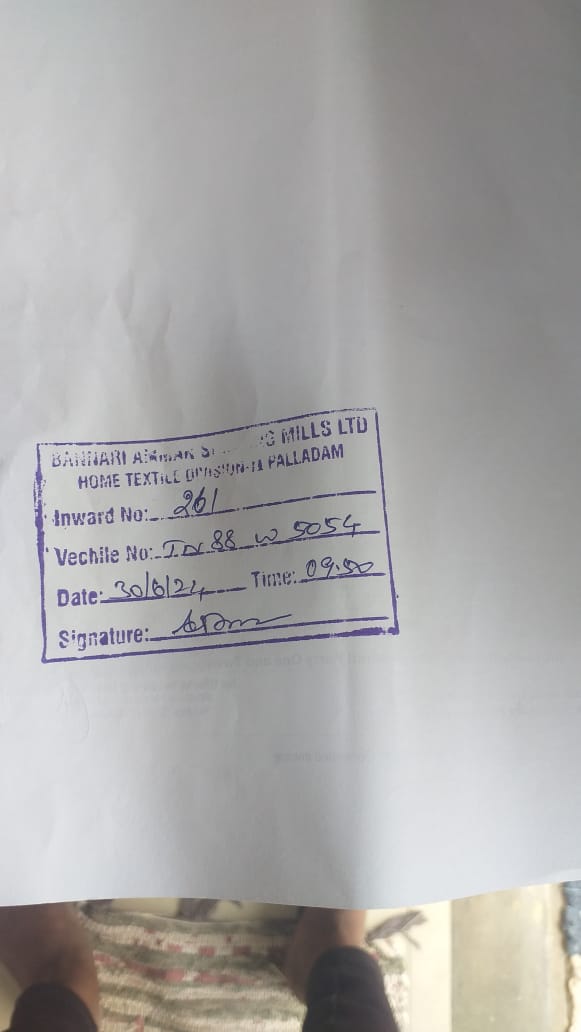 BANNARI AMMAN S MILLS LTD
HOME TEXTILE DIVISION-II PALLADAM
Inward No: 261
Vechile No: TN 88 W 5054
Date: 30/6/24 Time: 09.50
Signature: